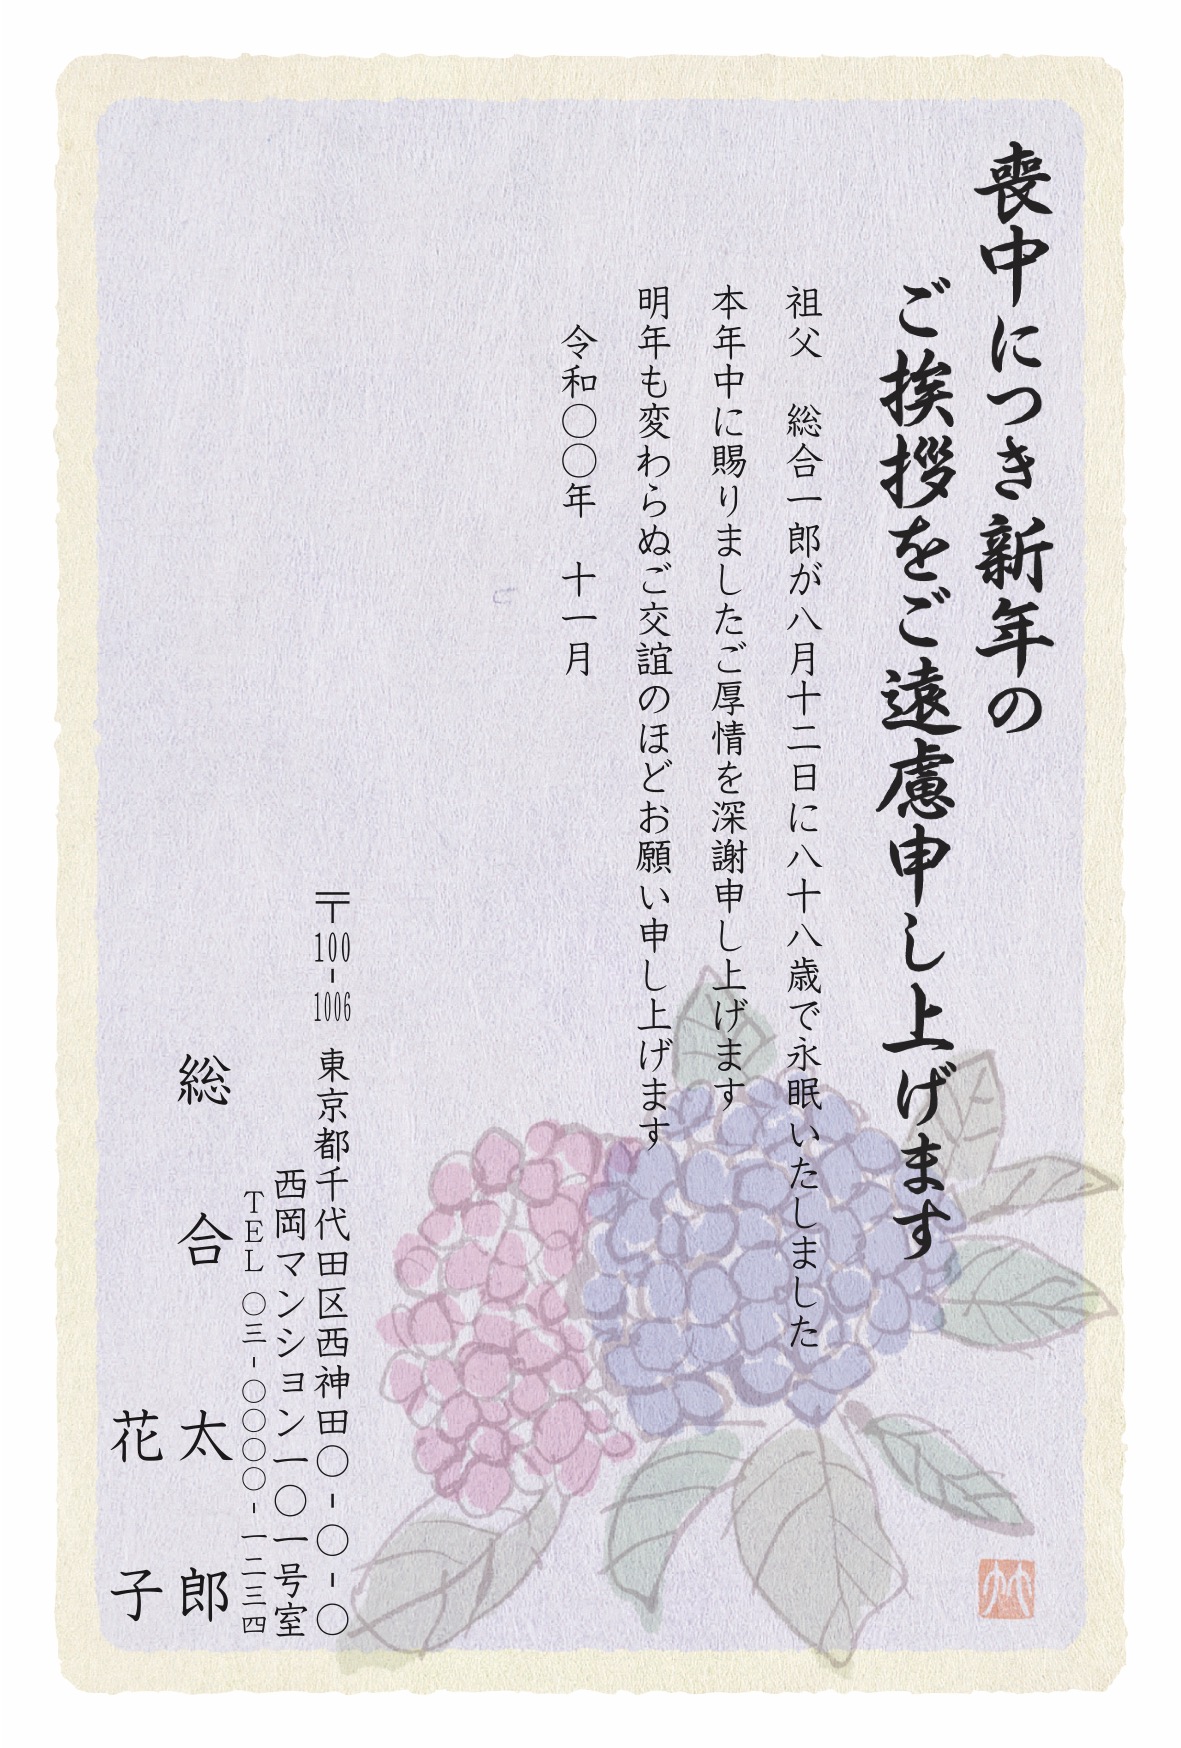 喪中につき新年の
ご挨拶をご遠慮申し上げます
祖父　総合一郎が八月十二日に八十八歳で永眠いたしました
本年中に賜りましたご厚情を深謝申し上げます
明年も変わらぬご交誼のほどお願い申し上げます
令和〇〇年　十一月
〒100-1006　東京都千代田区西神田〇-〇-〇
西岡マンション一〇一号室
TEL 〇三-〇〇〇〇-一二三四
総合　太郎
花子